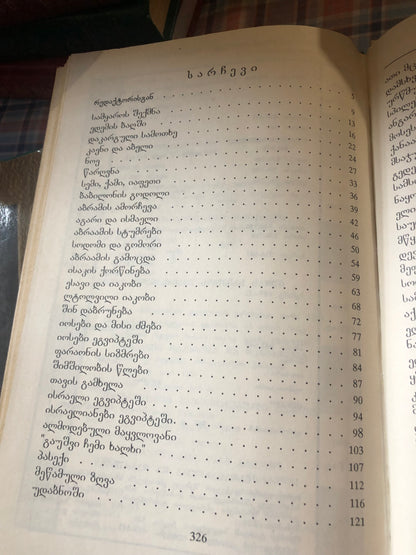 სარჩევი
რედაქტორისგან 5
სამყაროს შექმნა 9
ედემის ბაღში 13
დაკარგული სამოთხე 16
კაენი და აბელი 22
ნოე 24
წარღვნა 27
სემი, ქამი, იაფეთი 33
ბაბილონის გოდოლი 36
აბრამის ამორჩევა 39
აგარი და ისმაელი 42
აბრაამის სტუმრები 46
სოდომი და გომორი 50
აბრაამის გამოცდა 54
ისაკის ქორწინება 59
ესავი და იაკობი 63
ლტოლვილი იაკობი 68
შინ დაბრუნება 72
იოსები და მისი ძმები 77
იოსები ეგვიპტეში 81
ფარაონის სიზმრები 84
შიმშილობის წლები 87
თავის გამხელა 90
ისრაელი ეგვიპტეში 94
ისრაელიანები ეგვიპტეში. 98
აღმოდებული მაყვლოვანი 103
"გაუშვი ჩემი ხალხი" 107
პასექი 112
მეწამული ზღვა 116
უდაბნოში 121
326